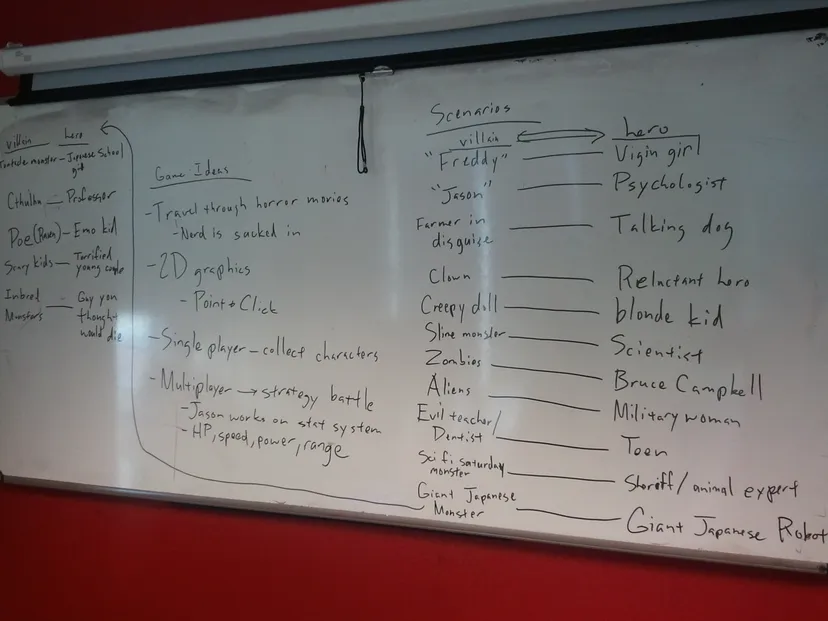 villain hero
Tentacle monster - Japanese School
girl
Cthulhu - Professor
Poe (Raven) - Emo kid
Scary kids - Terrified
young couple
Inbred - Guy you
Monsters thought
would die
Game Ideas
- Travel through horror movies
- Nerd is sucked in
- 2D graphics
- Point + Click
- Single player - collect characters
- Multiplayer → strategy battle
- Jason works on stat system
- HP, speed, power, range
Scenarios
villain ↔ hero
"Freddy" - Vigin girl
"Jason" - Psychologist
Farmer in
disguise - Talking dog
Clown - Reluctant hero
Creepy doll - blonde kid
Slime monster - Scientist
Zombies - Bruce Campbell
Aliens - Military woman
Evil teacher/
Dentist - Teen
Sci fi saturday
monster - Sheriff/animal expert
Giant Japanese
Monster - Giant Japanese Robot